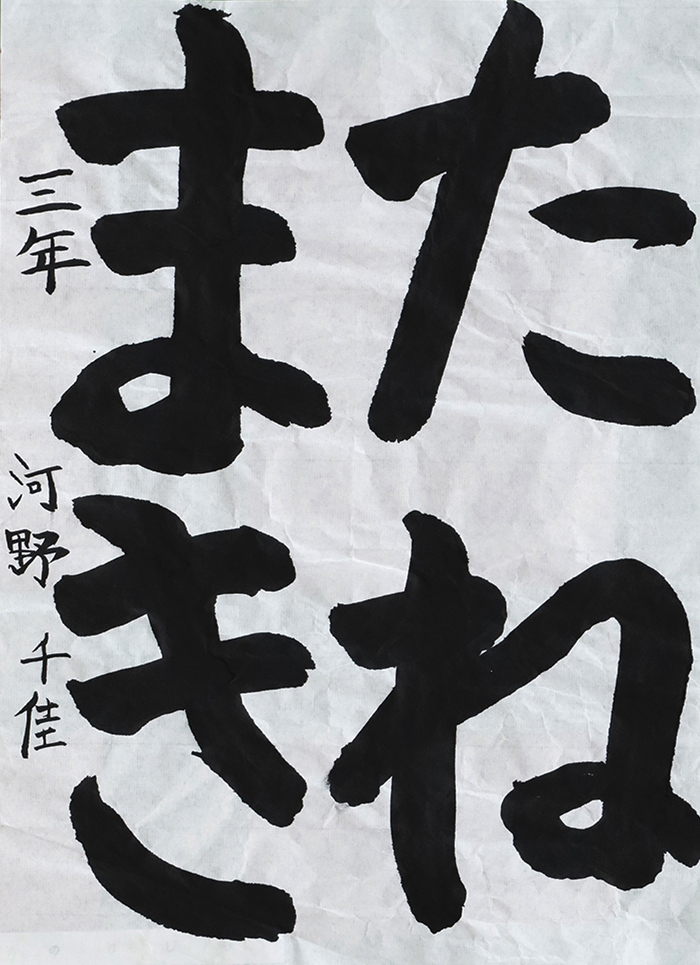 たね
まき
三年 河野 千佳